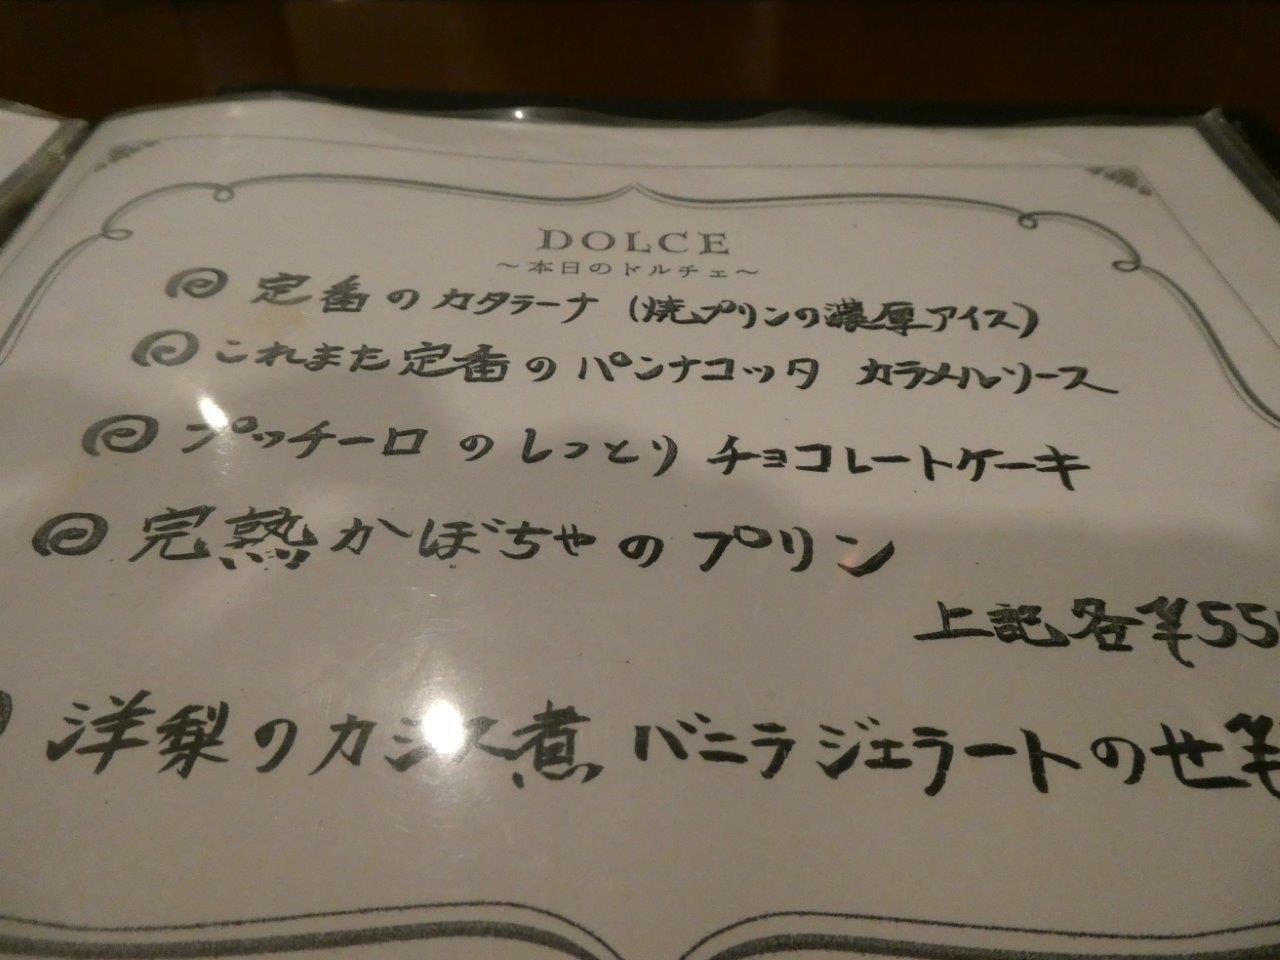 DOLCE
～本日のドルチェ～
定番のカタラーナ (焼プリンの濃厚アイス)
これまた定番のパンナコッタ カラメルソース
プッチーロのしっとりチョコレートケーキ
完熟かぼちゃのプリン
上記各¥55
洋梨のカシス煮 バニラジェラートのせ¥